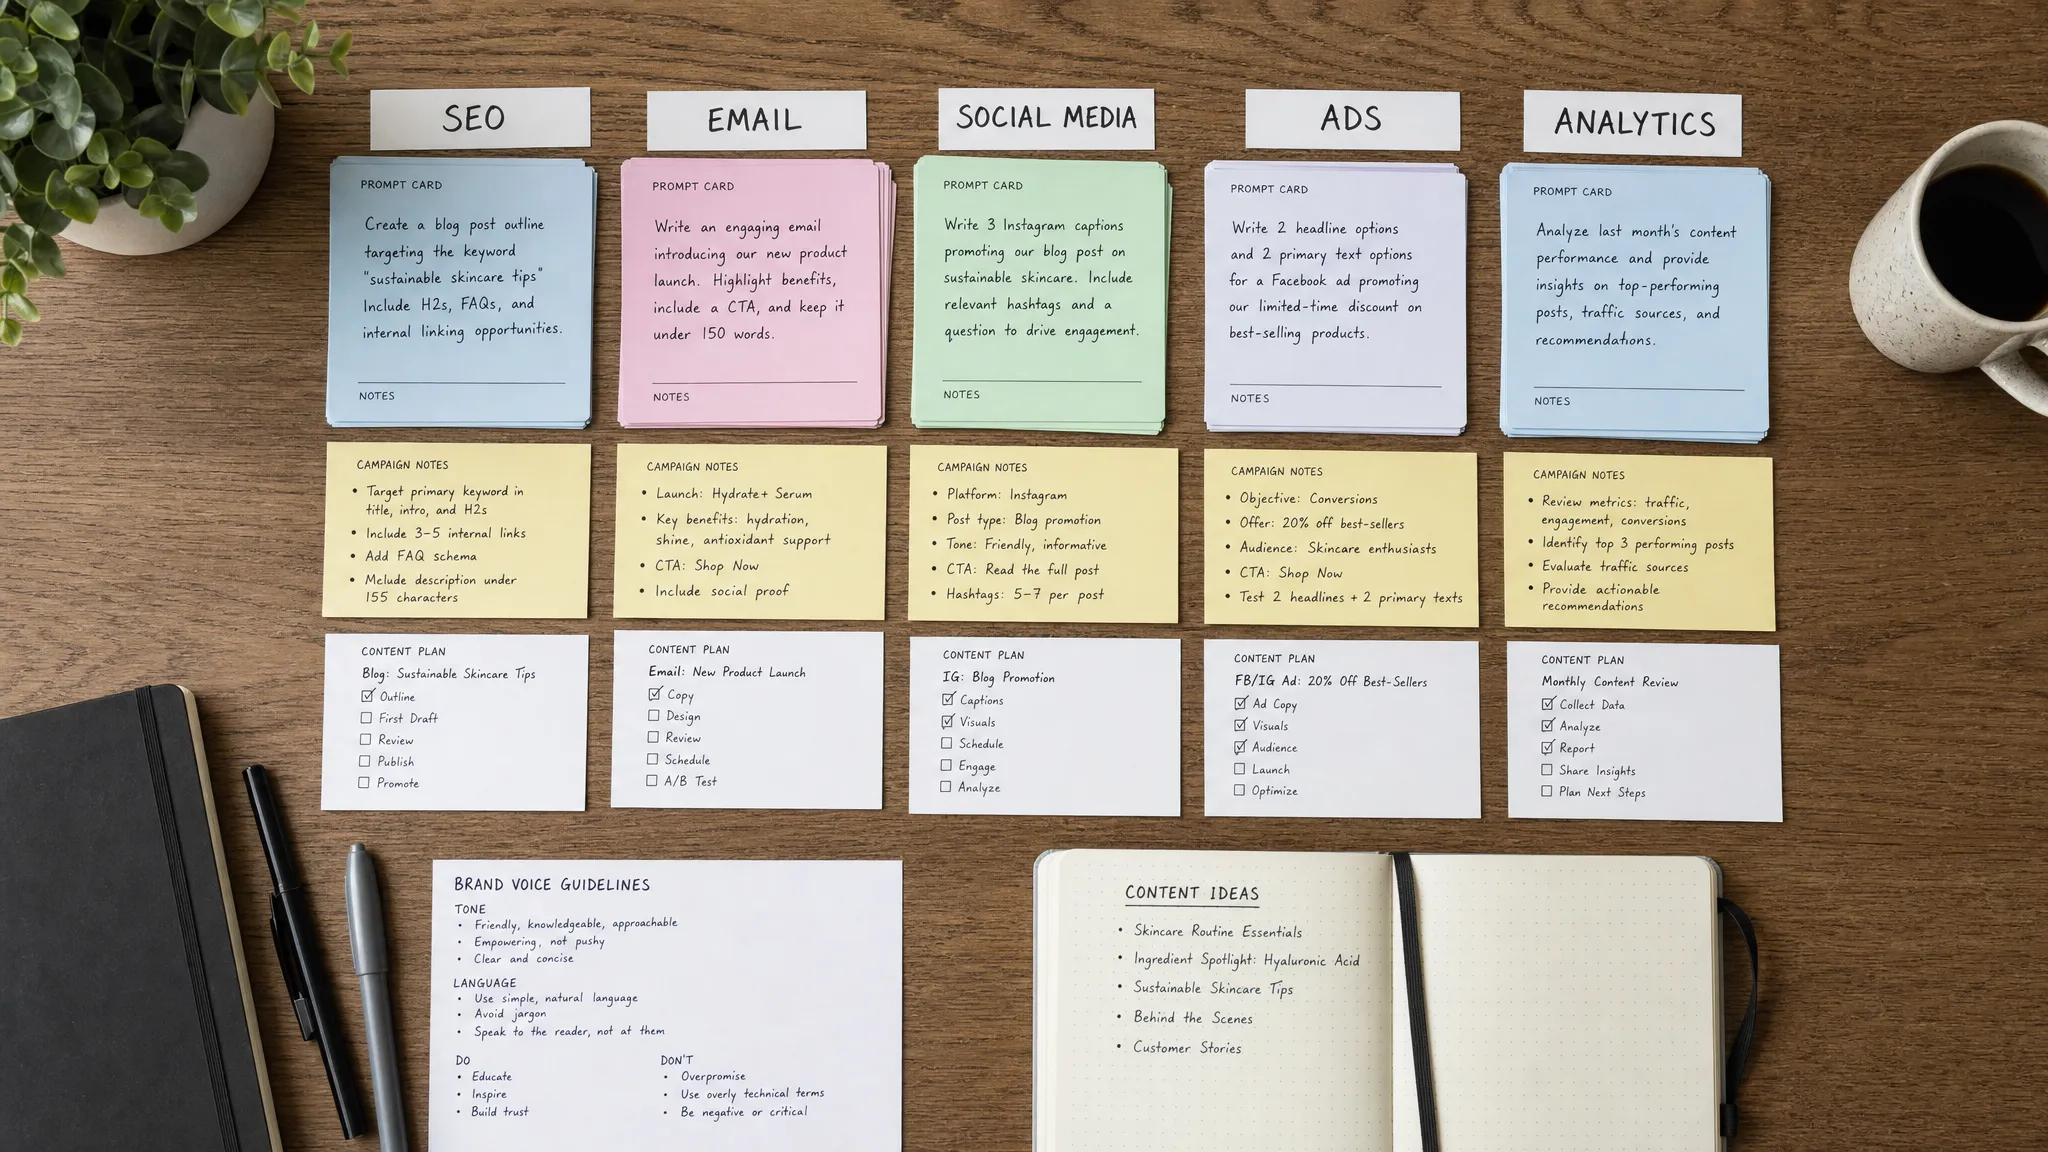 SEO
EMAIL
SOCIAL MEDIA
ADS
ANALYTICS
PROMPT CARD
Create a blog post outline
targeting the keyword
"sustainable skincare tips"
Include H2s, FAQs, and
internal linking opportunities.
NOTES
PROMPT CARD
Write an engaging email
introducing our new product
launch. Highlight benefits,
include a CTA, and keep it
under 150 words.
NOTES
PROMPT CARD
Write 3 Instagram captions
promoting our blog post on
sustainable skincare. Include
relevant hashtags and a
question to drive engagement.
NOTES
PROMPT CARD
Write 2 headline options
and 2 primary text options
for a Facebook ad promoting
our limited-time discount on
best-selling products.
NOTES
PROMPT CARD
Analyze last month's content
performance and provide
insights on top-performing
posts, traffic sources, and
recommendations.
NOTES
CAMPAIGN NOTES
• Target primary keyword in
title, intro, and H2s
• Include 3-5 internal links
• Add FAQ schema
• Melude description under
155 characters
CAMPAIGN NOTES
• Launch: Hydrate+ Serum
• Key benefits: hydration,
shine, antioxidant support
• CTA: Shop Now
• Include social proof
CAMPAIGN NOTES
• Platform: Instagram
• Post type: Blog promotion
• Tone: Friendly, informative
• CTA: Read the full post
• Hashtags: 5-7 per post
CAMPAIGN NOTES
• Objective: Conversions
• Offer: 20% off best-sellers
• Audience: Skincare enthusiasts
• CTA: Shop Now
• Test 2 headlines + 2 primary texts
CAMPAIGN NOTES
• Review metrics: traffic,
engagement, conversions
• Identify top 3 performing posts
• Evaluate traffic sources
• Provide actionable
recommendations
CONTENT PLAN
Blog: Sustainable Skincare Tips
Outline
First Draft
Review
Publish
Promote
CONTENT PLAN
Email: New Product Launch
Copy
Design
Review
Schedule
A/B Test
CONTENT PLAN
IG: Blog Promotion
Captions
Visuals
Schedule
Engage
Analyze
CONTENT PLAN
FB/IG Ad: 20% Off Best-Sellers
Ad Copy
Visuals
Audience
Launch
Optimize
CONTENT PLAN
Monthly Content Review
Collect Data
Analyze
Report
Share Insights
Plan Next Steps
BRAND VOICE GUIDELINES
TONE
• Friendly, knowledgeable, approachable
• Empowering, not pushy
• Clear and concise
LANGUAGE
• Use simple, natural language
• Avoid jargon
• Speak to the reader, not at them
DO
• Educate
• Inspire
• Build trust
DON'T
• Overpromise
• Use overly technical terms
• Be negative or critical
CONTENT IDEAS
• Skincare Routine Essentials
• Ingredient Spotlight: Hyaluronic Acid
• Sustainable Skincare Tips
• Behind the Scenes
• Customer Stories